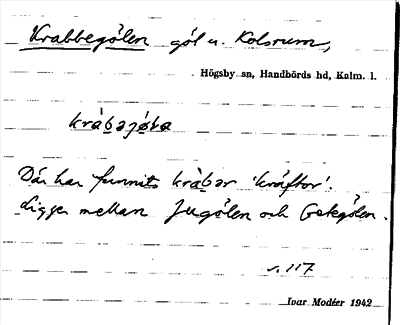 Krabbegölen göl u. Kolsrum,
Högsby sn, Handbörds hd, Kalm. l.
kràbəjö̀va
Där har funnits kràbər 'kräftor'.
Ligger mellan Jugölen och Getegölen.
s. 117
Ivar Modéer 1942